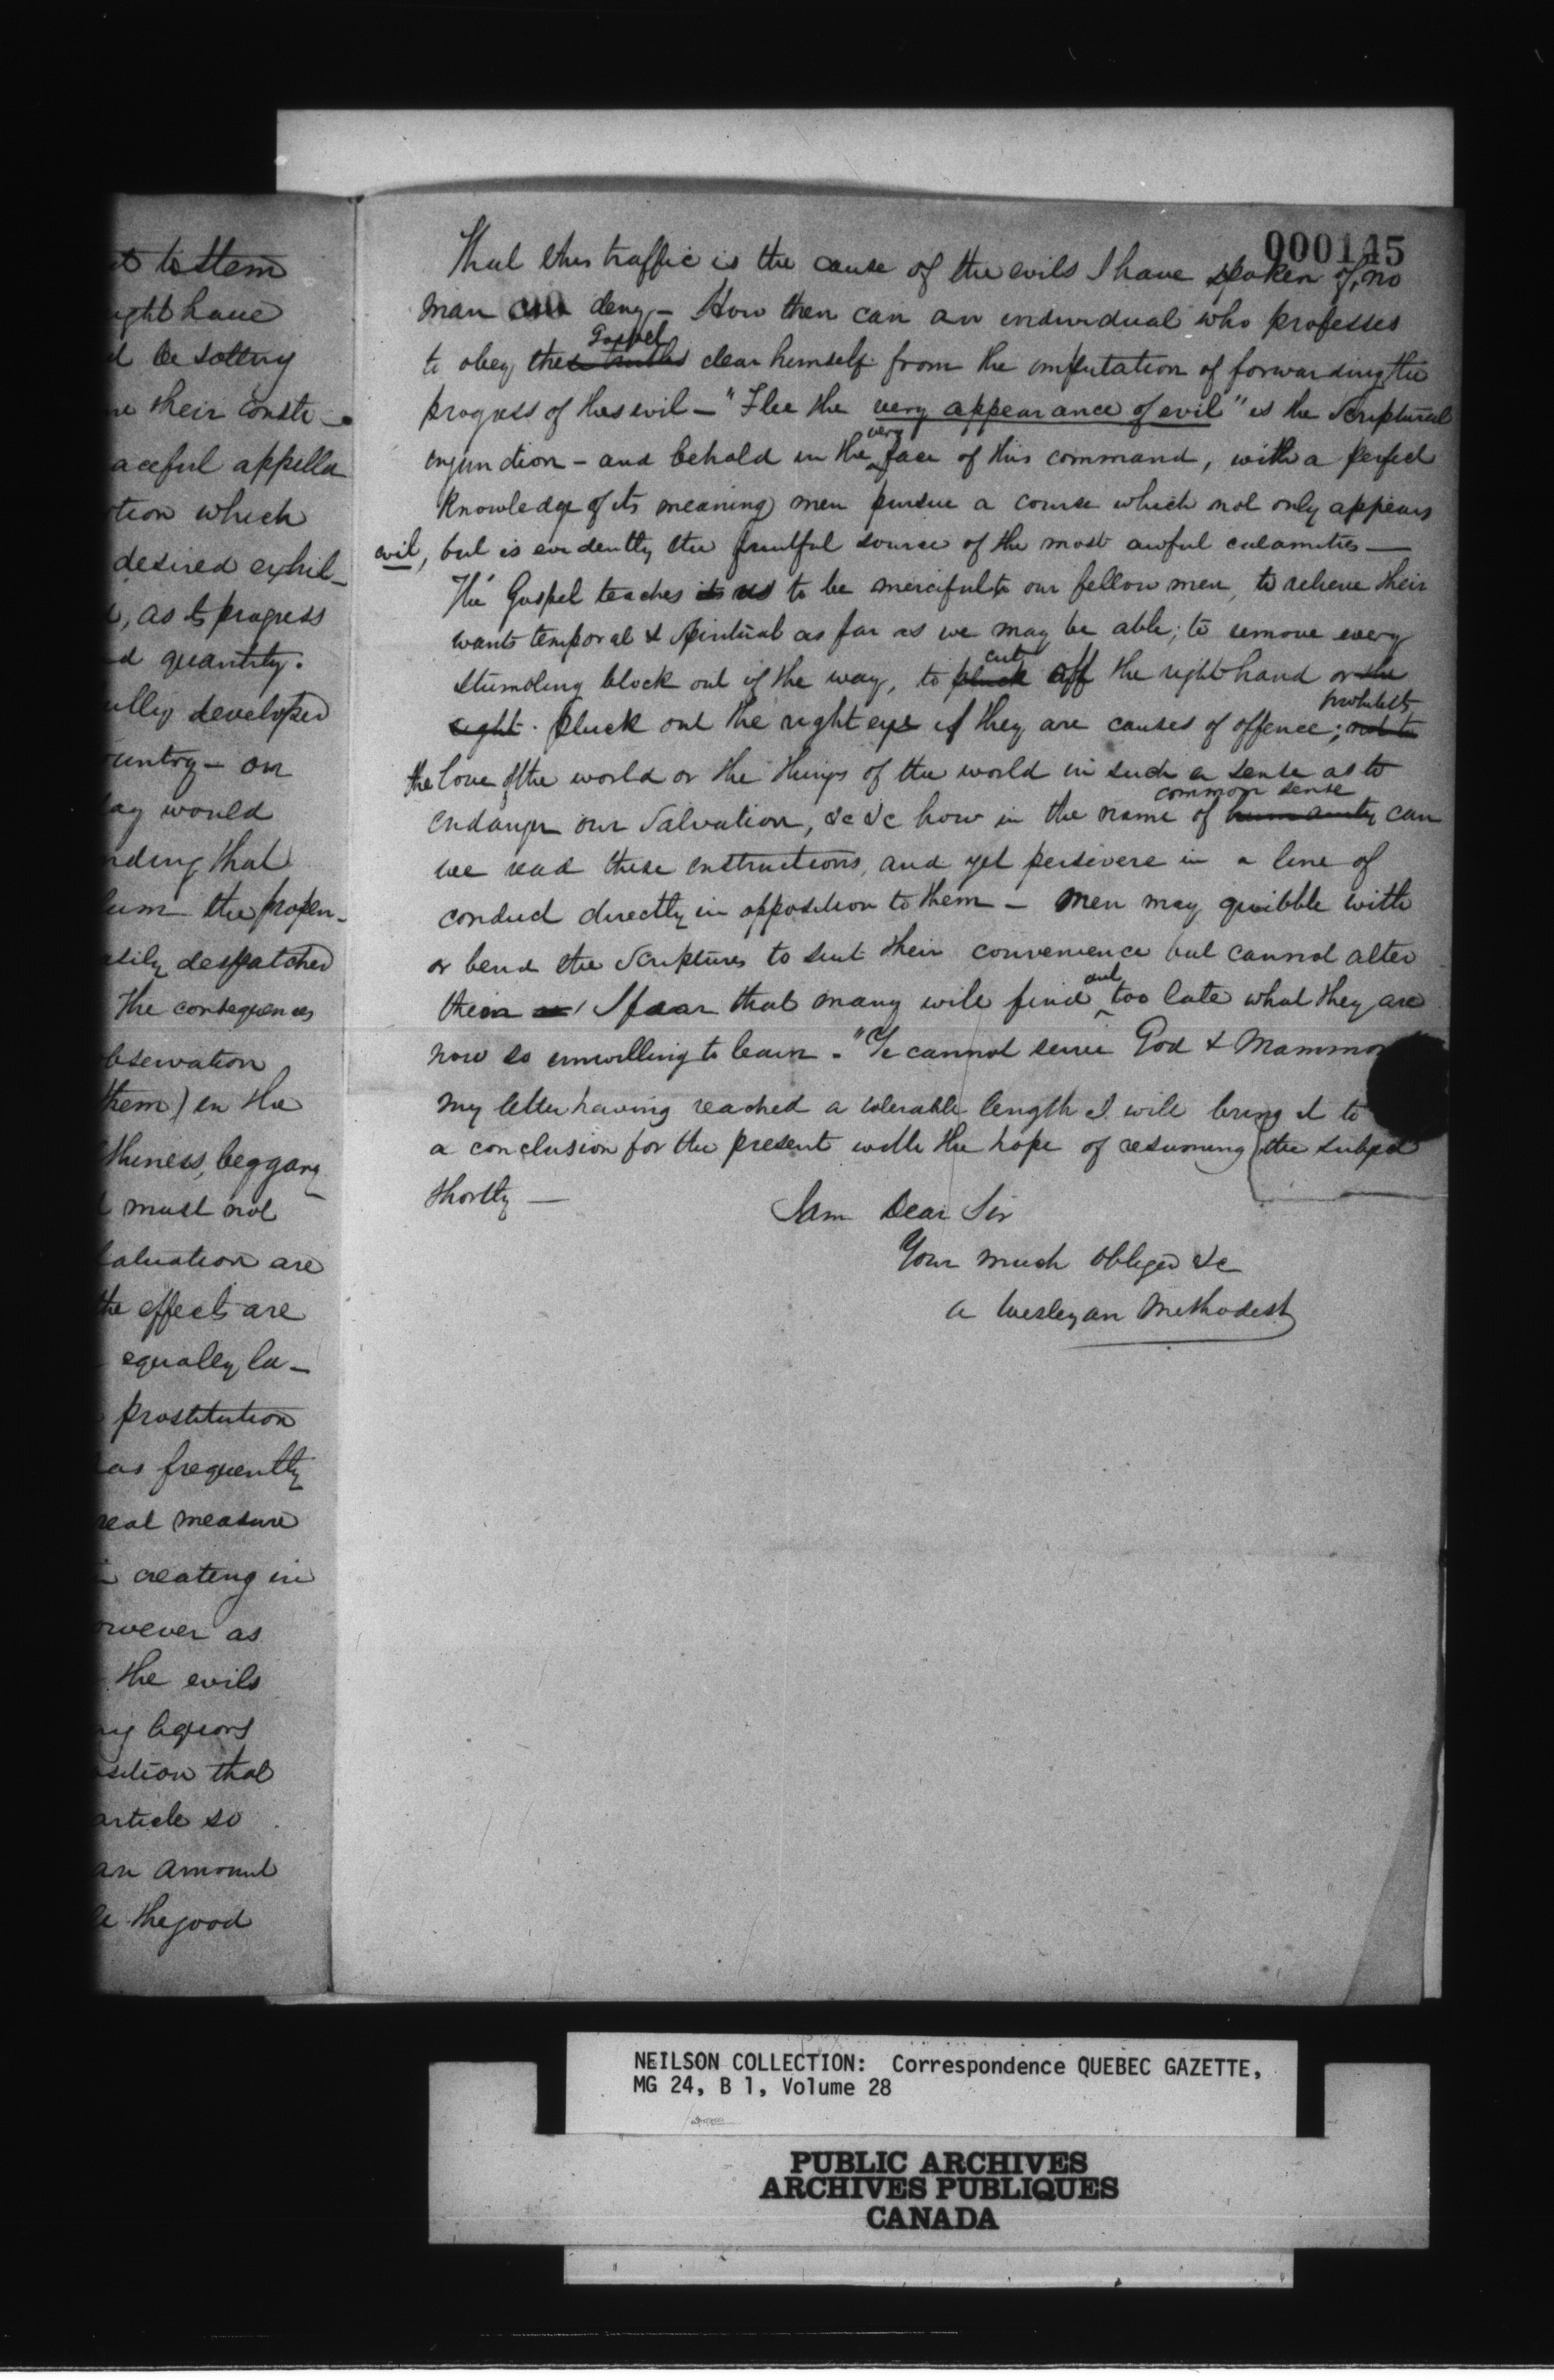 to stem
ight have
d be sottery
their consti-
aceful appella
tion which
desired exhil-
, as to progress
d quantity.
ully developed
untry - on
lay would
nding that
the propen-
asily despatched
the consequences
bservation
them) in the
thiness, beggary
must not
aluation are
the effects are
equally la-
prostitution
as frequently
real measure
creating in
owever as
the evils
ing liquors
sition that
article so
an amount
the good
000145
That this traffic is the cause of the evils I have spoken of, no
man can deny - How then can an individual who professes
Gospel
to obey these truths clear himself from the imputation of forwarding the
progress of this evil - "Flee the very appearance of evil" is the Scriptural
very
injunction - and behold in the face of this command, with a perfect
knowledge of its meaning men pursue a course which not only appears
evil, but is evidently the fruitful source of the most awful calamities -
The Gospel teaches us to be merciful to our fellow men, to relieve their
wants temporal & Spiritual as far as we may be able; to remove every
cut
stumbling block out of the way, to pluck off the right hand or the
prohibits
right. pluck out the right eye if they are causes of offence; not to
the love of the world or the things of the world in such a sense as to
common sense
endanger our Salvation, &c &c how in the name of humanity can
we read these instructions, and yet persevere in a line of
conduct directly in opposition to them - Men may quibble with
or bend the Scriptures to suit their convenience but cannot alter
out
them I fear that many will find too late what they are
now so unwilling to learn - "Ye cannot serve God & Mammon
My letter having reached a tolerable length I will bring it to
a conclusion for the present with the hope of resuming the subject
shortly -
I am Dear Sir
Your much obliged &c
A Wesleyan Methodist
NEILSON COLLECTION: Correspondence QUEBEC GAZETTE,
MG 24, B 1, Volume 28
PUBLIC ARCHIVES
ARCHIVES PUBLIQUES
CANADA